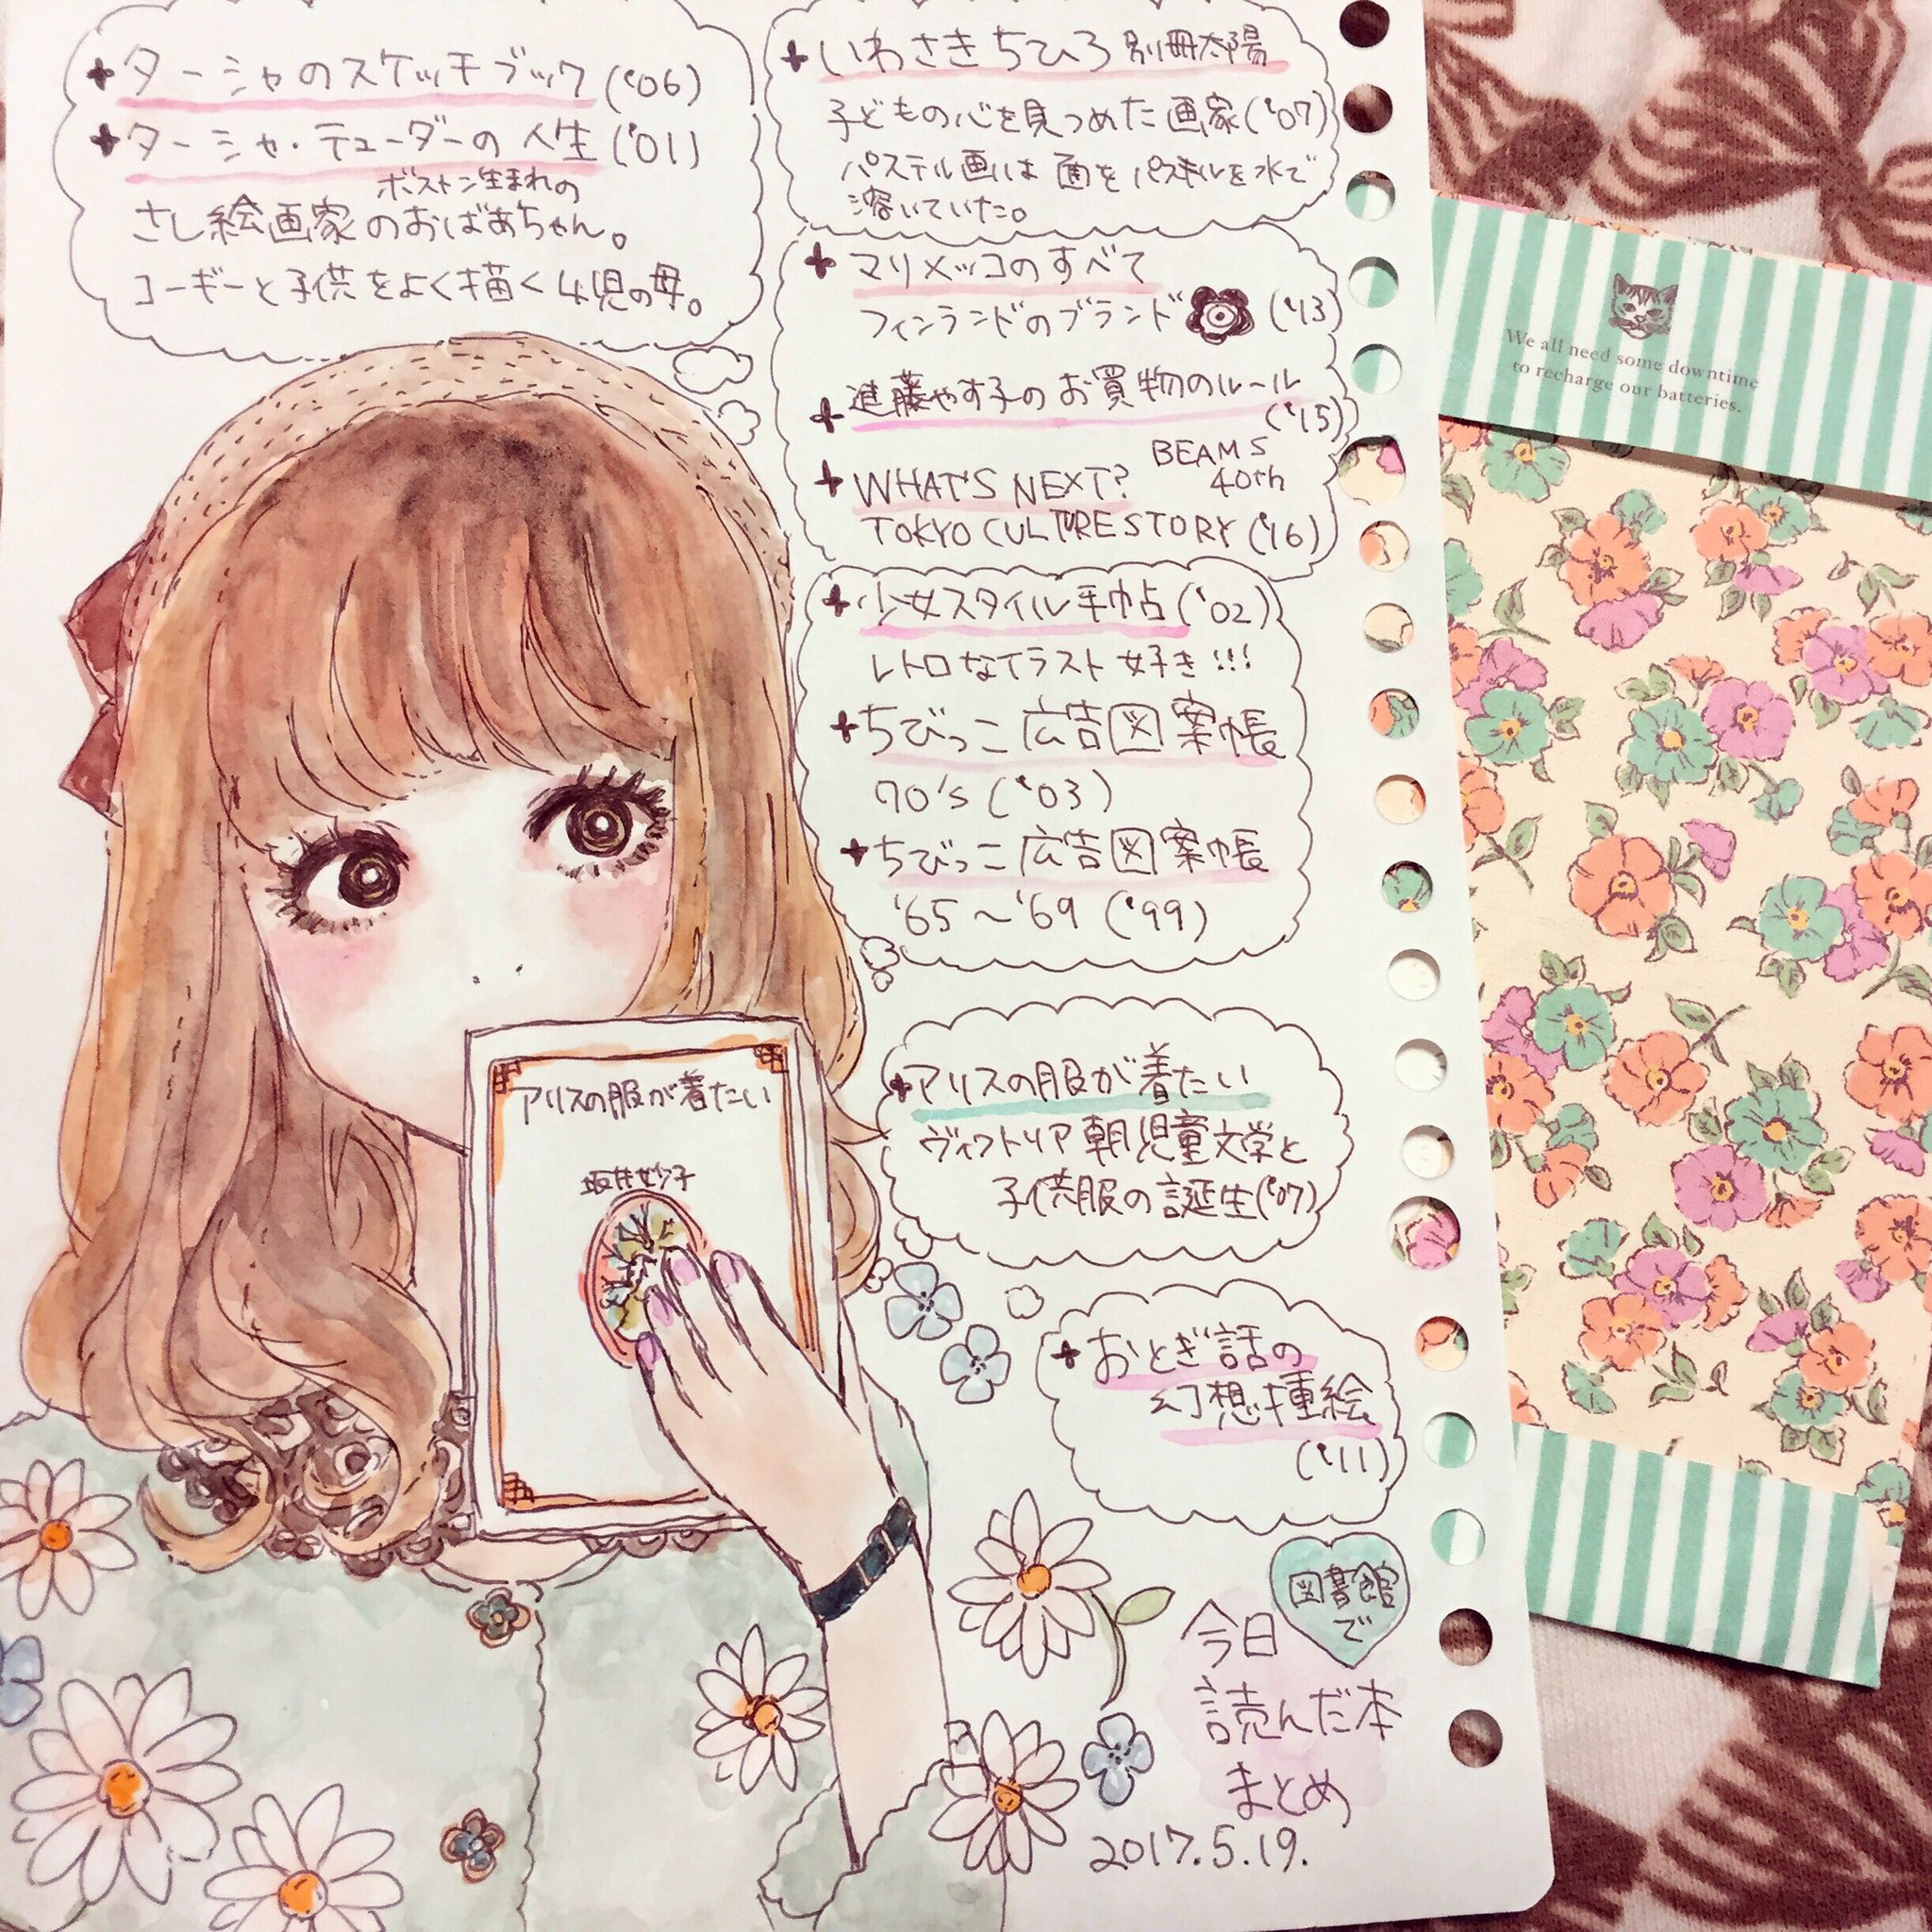 ターシャのスケッチブック('06)
ターシャ・テューダーの人生('01)
ボストン生まれの
さし絵画家のおばあちゃん。
コーギーと子供をよく描く4児の母。
いわさきちひろ 別冊太陽
子どもの心を見つめた画家('07)
パステル画は 面をパステルを水で
溶いていた。
マリメッコのすべて
フィンランドのブランド ('13)
進藤やす子のお買物のルール
('15)
WHAT'S NEXT? BEAMS
40th
TOKYO CULTURE STORY ('16)
少女スタイル手帖('02)
レトロなイラスト好き!!!
ちびっこ広告図案帳
70's ('03)
ちびっこ広告図案帳
'65～'69 ('99)
アリスの服が着たい
ヴィクトリア朝児童文学と
子供服の誕生('07)
おとぎ話の
幻想挿絵
('11)
アリスの服が着たい
坂井妙子
図書館
で
今日
読んだ本
まとめ
2017.5.19.
We all need some downtime
to recharge our batteries.